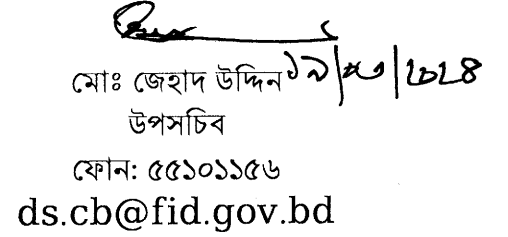 মোঃ জেহাদ উদ্দিন
উপসচিব
ফোন: ৫৫১০১১৫৬
ds.cb@fid.gov.bd